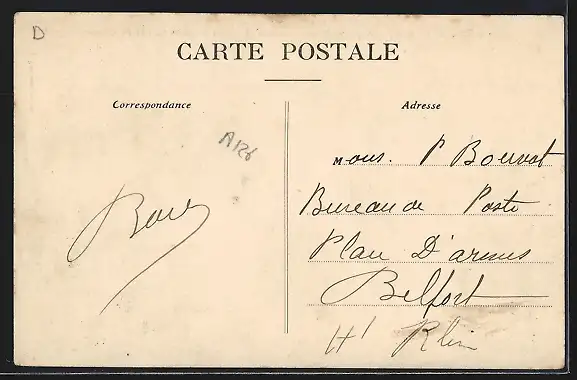 D
CARTE POSTALE
Correspondance
Adresse
A126
Mons. P Bourvot
Bureau de Poste
Plan D'armes
Belfort
Ht Rhin